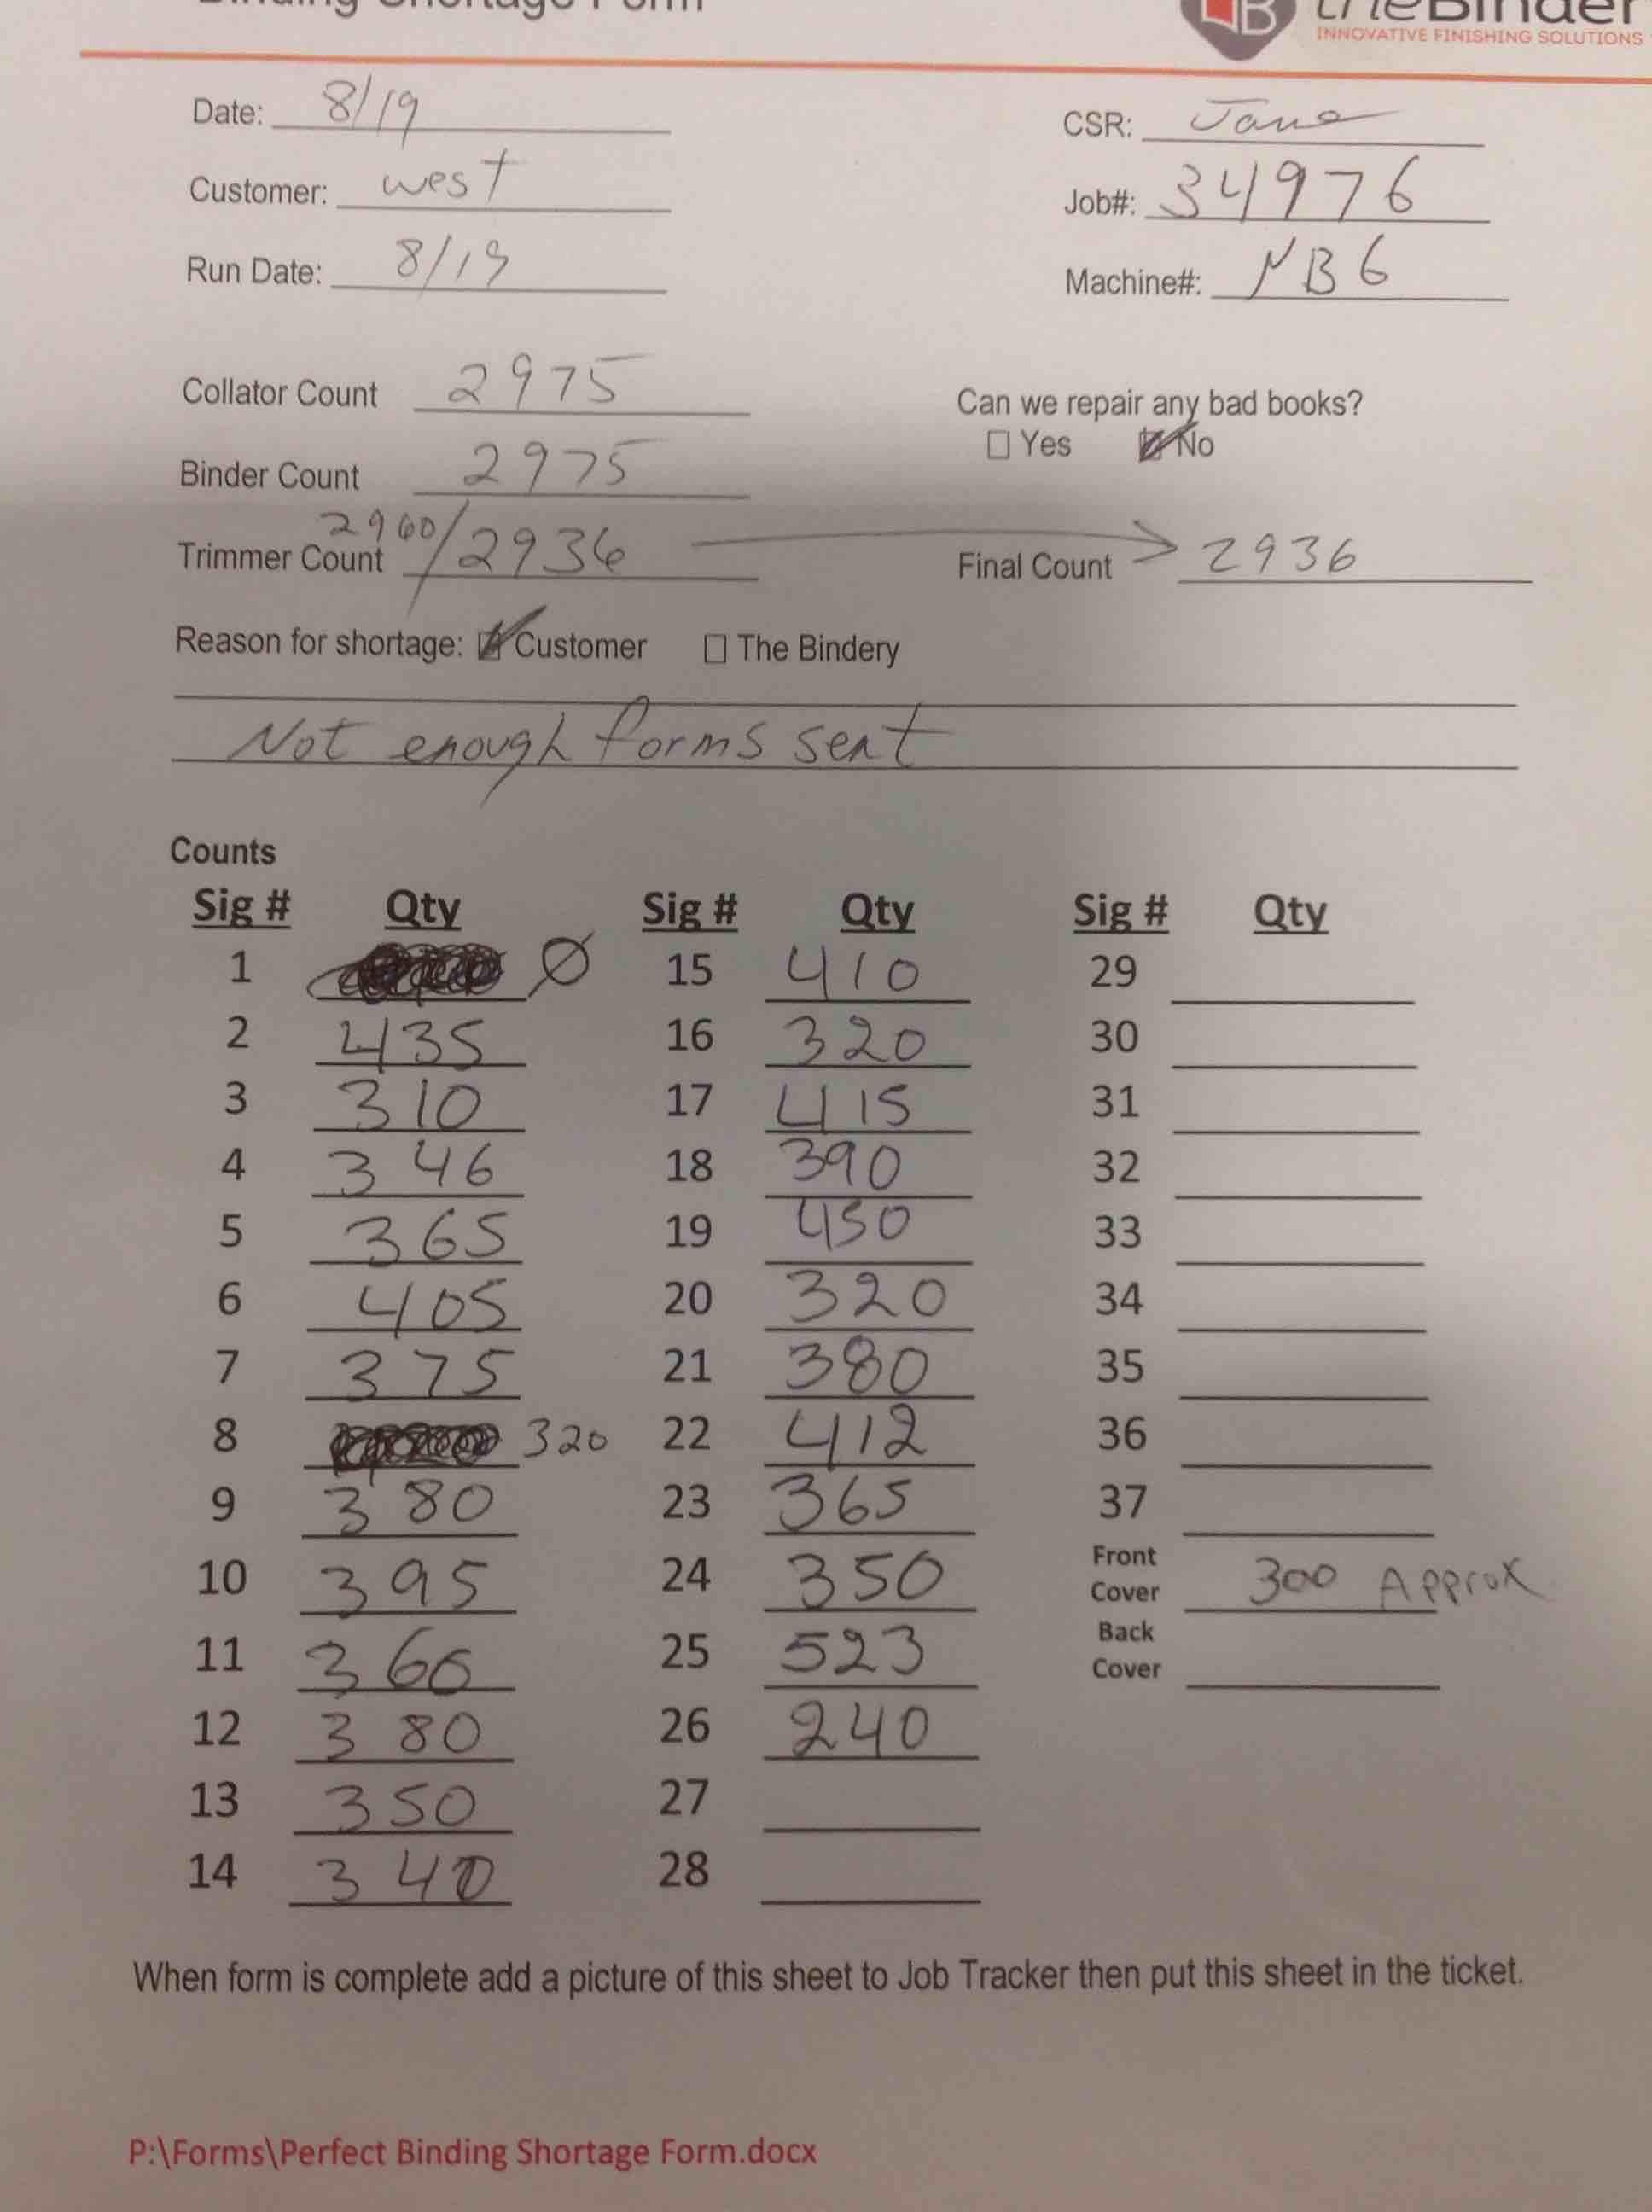 Binding Shortage Form
theBinder
INNOVATIVE FINISHING SOLUTIONS
Date: 8/19
CSR: Jana
Customer: west
Job#: 34976
Run Date: 8/19
Machine#: NB6
Collator Count 2975
Can we repair any bad books?
Yes No
Binder Count 2975
Trimmer Count 2960/2936
Final Count 2936
Reason for shortage: Customer The Bindery
Not enough forms sent
Counts
Sig # Qty Sig # Qty Sig # Qty
1 Ø 15 410 29
2 435 16 320 30
3 310 17 415 31
4 346 18 390 32
5 365 19 450 33
6 405 20 320 34
7 375 21 380 35
8 320 22 412 36
9 380 23 365 37
10 395 24 350 Front Cover 300 Approx
11 360 25 523 Back Cover
12 380 26 240
13 350 27
14 340 28
When form is complete add a picture of this sheet to Job Tracker then put this sheet in the ticket.
P:\Forms\Perfect Binding Shortage Form.docx